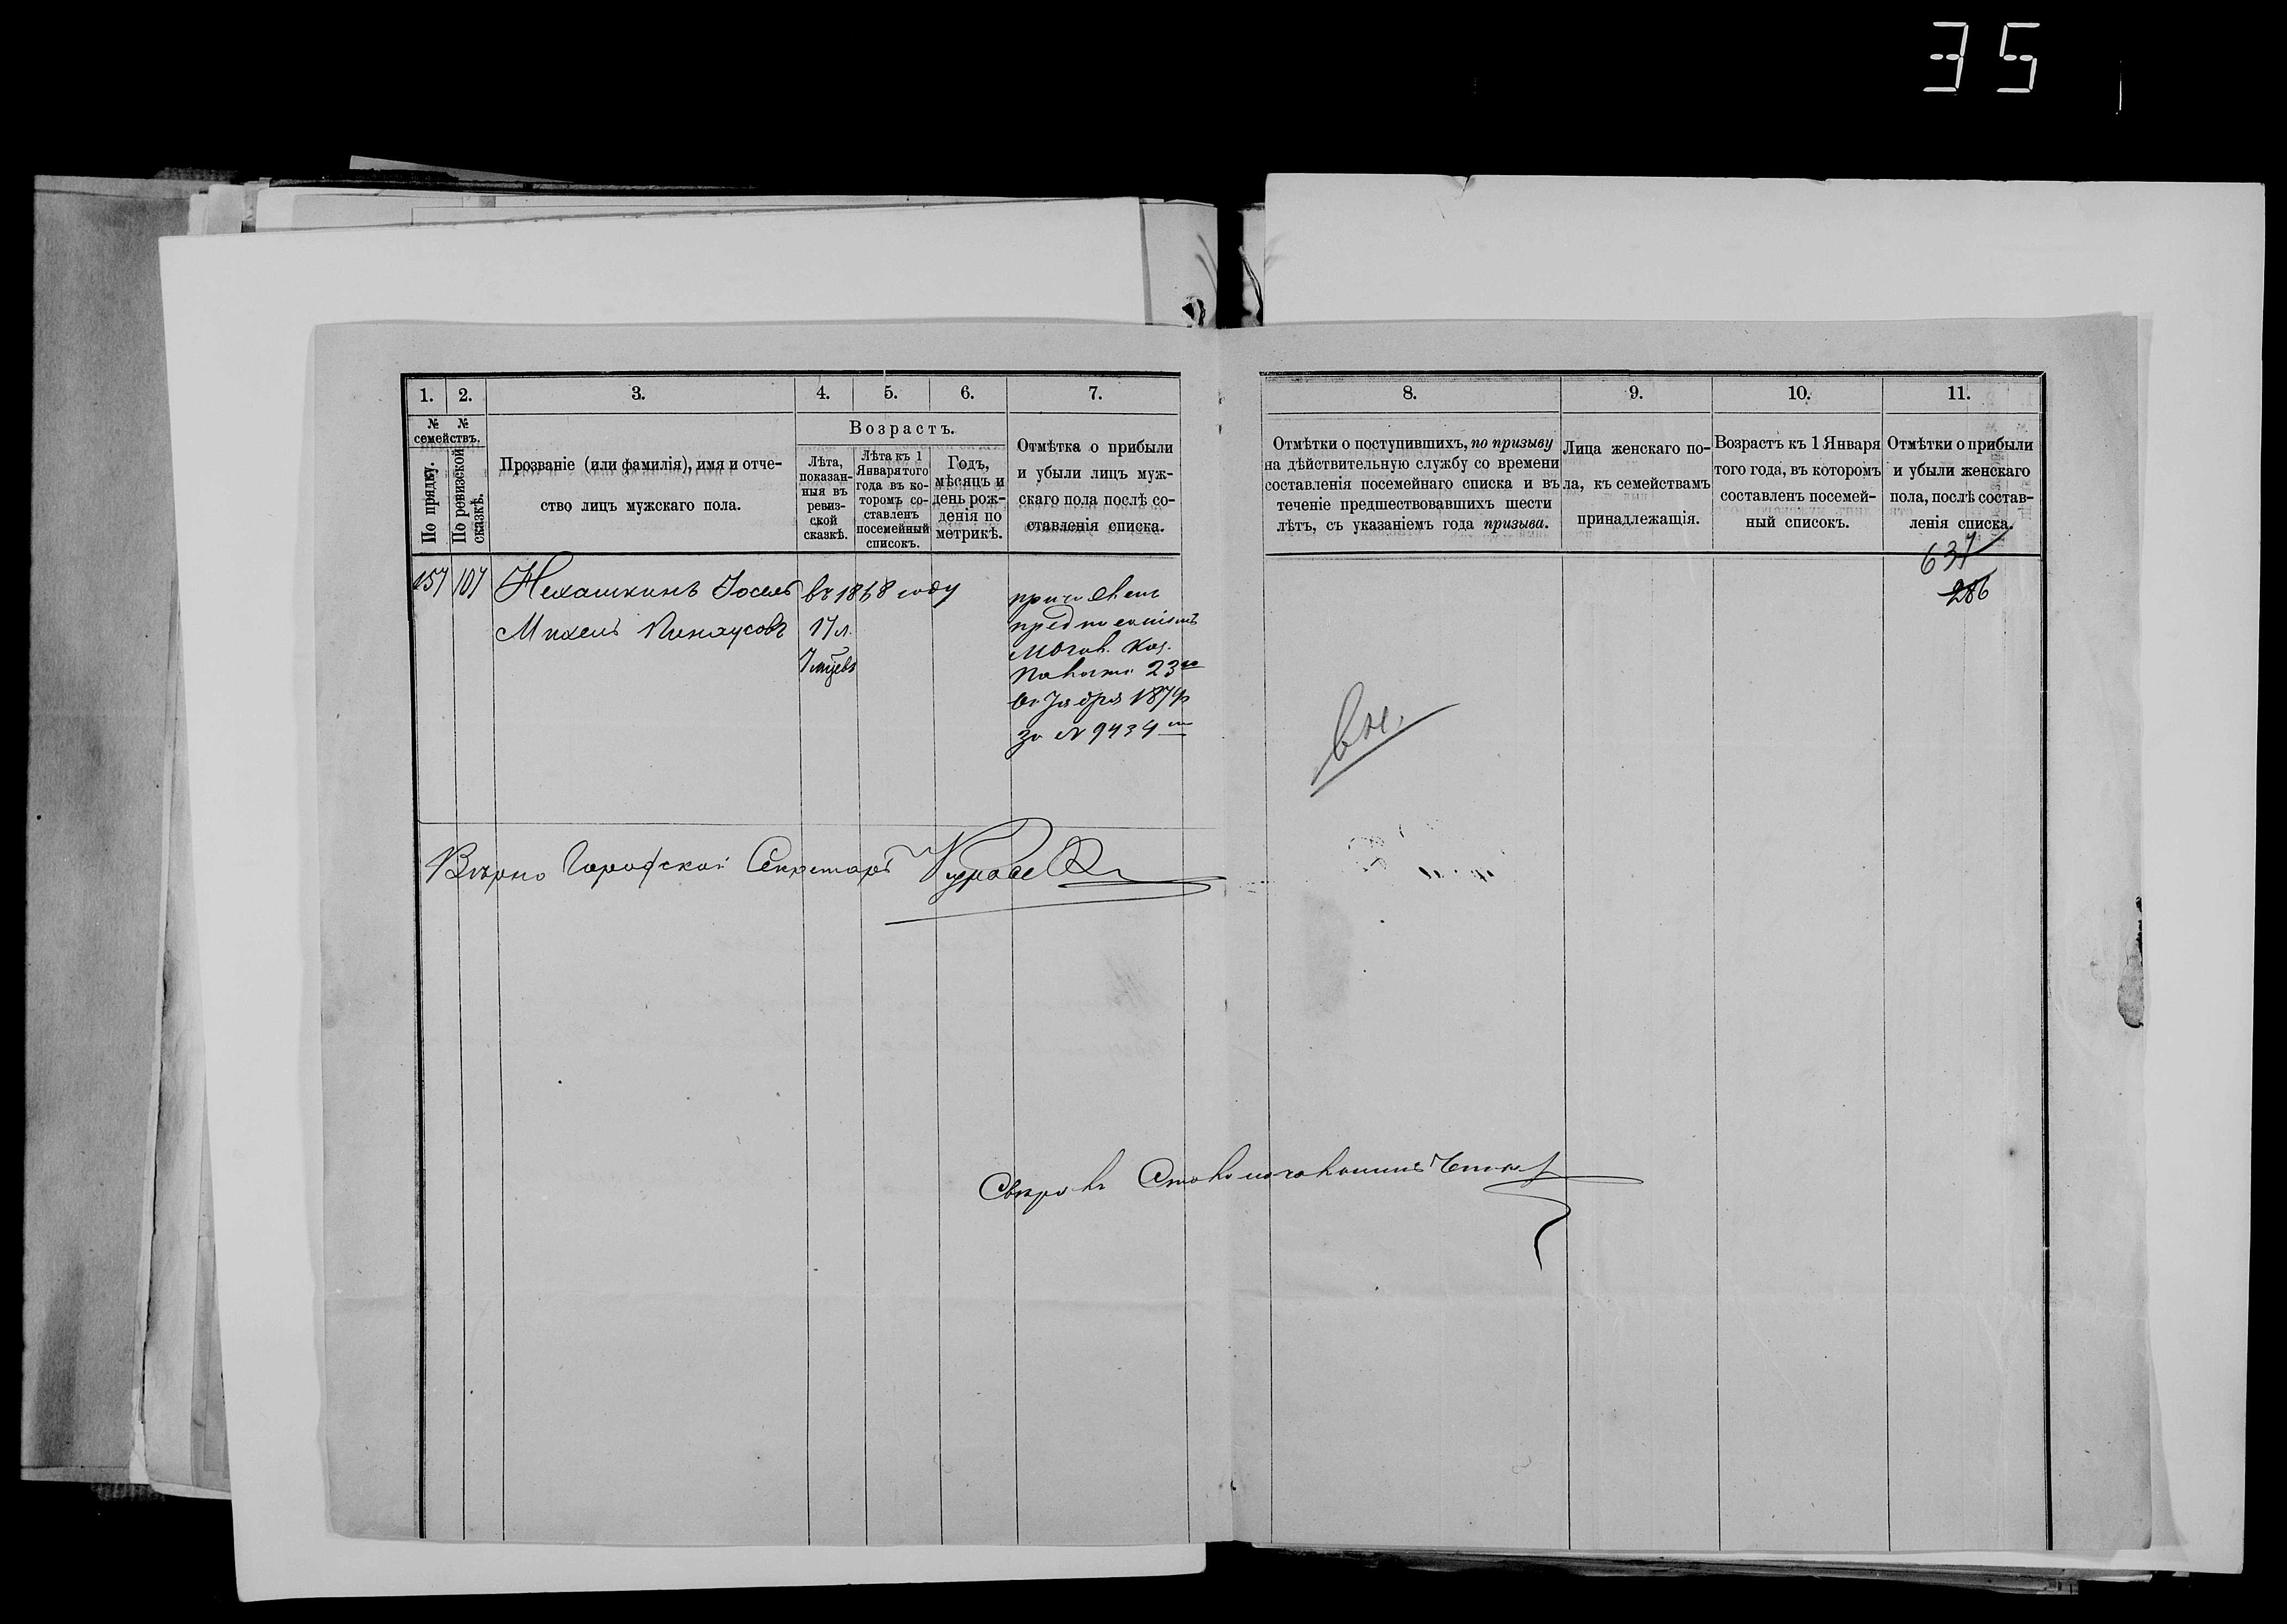 35
1. 2. 3. 4. 5. 6. 7.
№ № семействъ.
По прядку.
По ревизской сказкѣ.
Прозваніе (или фамилія), имя и отче-
ство лицъ мужскаго пола.
Возрастъ.
Лѣта,
показан-
ныя въ
ревиз-
ской
сказкѣ.
Лѣта къ 1
Января того
года въ ко-
торомъ со-
ставленъ
посемейный
списокъ.
Годъ,
мѣсяцъ и
день рож-
денія по
метрикѣ.
Отмѣтка о прибыли
и убыли лицъ муж-
скаго пола послѣ со-
ставленія списка.
157 107 Нехашкинъ Іосель
Михель Пинхусовъ
въ 1868 году
17 л.
причислен
Могов. Каз.
Палаты 23го
Октября 1874
за № 9434
Вѣрно Городской Секретарь
8. 9. 10. 11.
Отмѣтки о поступившихъ, по призыву
на дѣйствительную службу со времени
составленія посемейнаго списка и въ
теченіе предшествовавшихъ шести
лѣтъ, съ указаніемъ года призыва.
Лица женскаго по-
ла, къ семействамъ
принадлежащія.
Возрастъ къ 1 Января
того года, въ которомъ
составленъ посемей-
ный списокъ.
Отмѣтки о прибыли
и убыли женскаго
пола, послѣ состав-
ленія списка.
637
286
Свѣрялъ Столоначальникъ